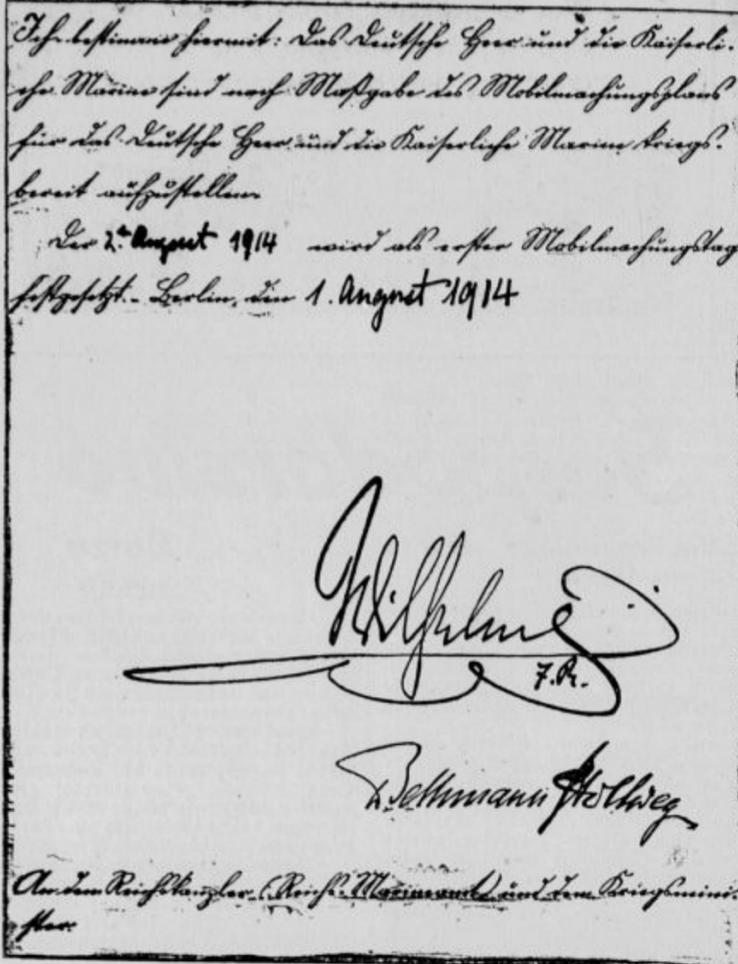 Ich bestimme hiermit: Das Deutsche Heer und die Kaiserli-
che Marine sind nach Maßgabe des Mobilmachungsplans
für das Deutsche Heer und die Kaiserliche Marine kriegs-
bereit aufzustellen.
Der 2te August 1914 wird als erster Mobilmachungstag
festgesetzt. - Berlin, den 1. August 1914
Wilhelm
I.R.
v. Bethmann Hollweg
An den Reichskanzler (Reichs-Marineamt) und den Kriegsmini-
ster.